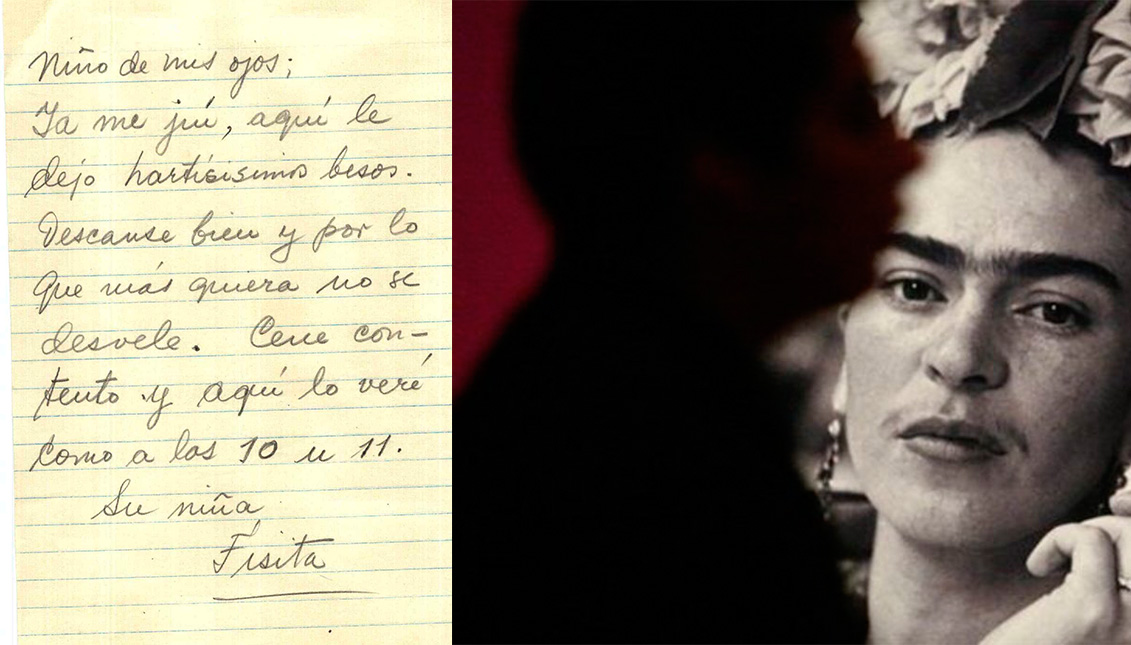 Niño de mis ojos;
Ya me juí, aquí le
dejo hartísisimos besos.
Descanse bien y por lo
que más quiera no se
desvele. Cene con-
tento y aquí lo veré
como a las 10 u 11.
Su niña,
Fisita